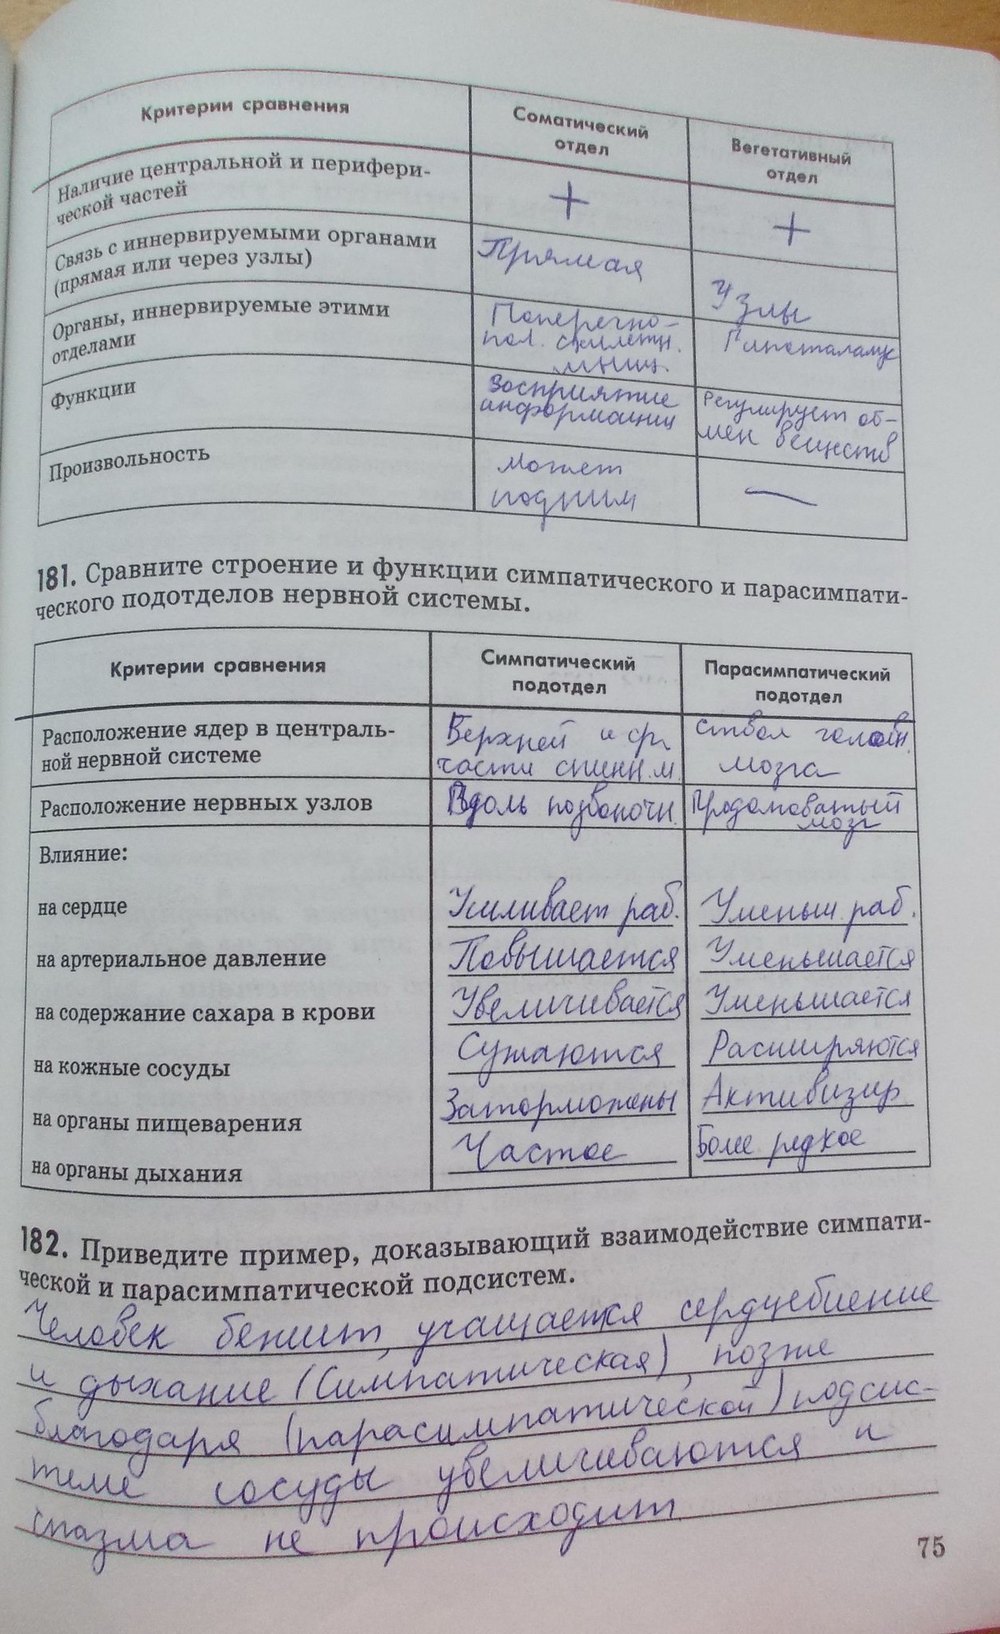 Критерии сравнения
Соматический
отдел
Вегетативный
отдел
Наличие центральной и перифери-
ческой частей
+
+
Связь с иннервируемыми органами
(прямая или через узлы)
Прямая
Узлы
Органы, иннервируемые этими
отделами
Поперечно-
пол. скелетн.
мышц.
Гипоталамус
Функции
Восприятие
информации
Регулирует об-
мен веществ
Произвольность
Может
подчин
—
181. Сравните строение и функции симпатического и парасимпати-
ческого подотделов нервной системы.
Критерии сравнения
Симпатический
подотдел
Парасимпатический
подотдел
Расположение ядер в централь-
ной нервной системе
Верхней и ср.
части спинн. м
ствол головн.
мозга
Расположение нервных узлов
Вдоль позвоночн.
Продолговатый
мозг
Влияние:
на сердце
Усиливает раб.
Уменьш. раб.
на артериальное давление
Повышается
Уменьшается
на содержание сахара в крови
Увеличивается
Уменьшается
на кожные сосуды
Сужаются
Расширяются
на органы пищеварения
Заторможены
Активизир
на органы дыхания
Частое
Более редкое
182. Приведите пример, доказывающий взаимодействие симпати-
ческой и парасимпатической подсистем.
Человек бежит, учащается сердцебиение
и дыхание (Симпатическая), позже
благодаря (парасимпатической) подсис-
теме сосуды увеличиваются и
спазма не происходит
75